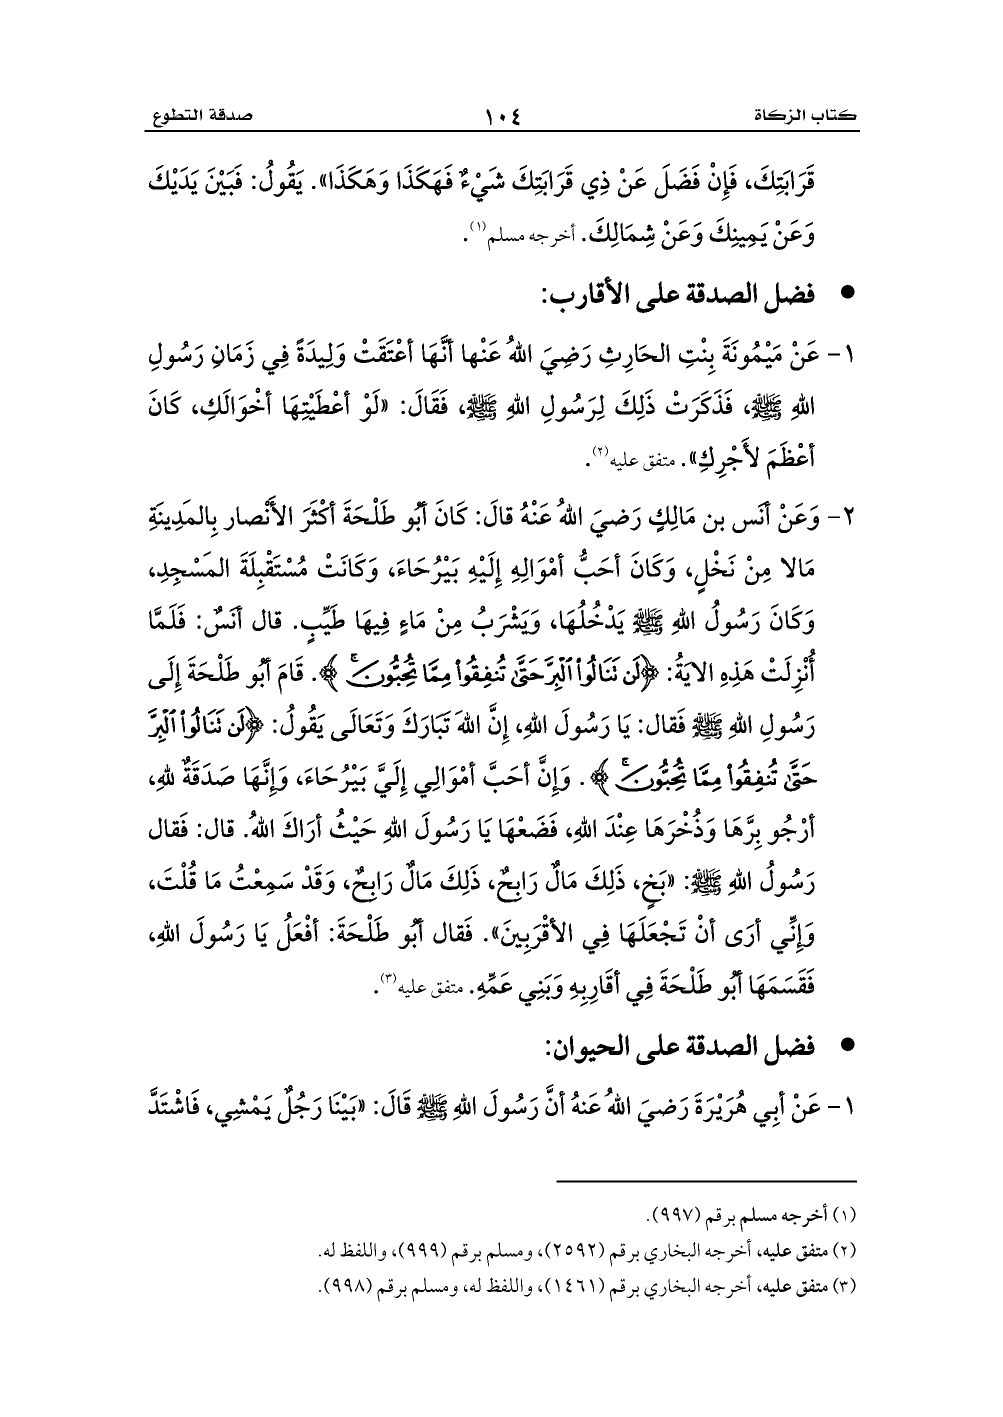 كتاب الزكاة ١٠٤ صدقة التطوع
قَرَابَتِكَ، فَإِنْ فَضَلَ عَنْ ذِي قَرَابَتِكَ شَيْءٌ فَهَكَذَا وَهَكَذَا». يَقُولُ: فَبَيْنَ يَدَيْكَ
وَعَنْ يَمِينِكَ وَعَنْ شِمَالِكَ. أخرجه مسلم(١).
● فضل الصدقة على الأقارب:
١- عَنْ مَيْمُونَةَ بِنْتِ الحَارِثِ رَضِيَ اللهُ عَنْها أنَّهَا أعْتَقَتْ وَلِيدَةً فِي زَمَانِ رَسُولِ
اللهِ ﷺ، فَذَكَرَتْ ذَلِكَ لِرَسُولِ اللهِ ﷺ، فَقَالَ: «لَوْ أعْطَيْتِهَا أخْوَالَكِ، كَانَ
أعْظَمَ لأَجْرِكِ». متفق عليه(٢).
٢- وَعَنْ أنَس بن مَالِكٍ رَضيَ اللهُ عَنْهُ قالَ: كَانَ أبُو طَلْحَةَ أكْثَرَ الأَنْصار بِالمَدِينَةِ
مَالا مِنْ نَخْلٍ، وَكَانَ أحَبُّ أمْوَالِهِ إلَيْهِ بَيْرُحَاءَ، وَكَانَتْ مُسْتَقْبِلَةَ المَسْجِدِ،
وَكَانَ رَسُولُ اللهِ ﷺ يَدْخُلُهَا، وَيَشْرَبُ مِنْ مَاءٍ فِيهَا طَيِّبٍ. قال أنَسٌ: فَلَمَّا
أُنْزِلَتْ هَذِهِ الايَةُ: ﴿لَن نَنَالُوا۟ ٱلْبِرَّ حَتَّىٰ تُنفِقُوا۟ مِمَّا تُحِبُّونَ ۚ﴾. قَامَ أبُو طَلْحَةَ إلَى
رَسُولِ اللهِ ﷺ فَقال: يَا رَسُولَ اللهِ، إنَّ اللهَ تَبَارَكَ وَتَعَالَى يَقُولُ: ﴿لَن نَنَالُوا۟ ٱلْبِرَّ
حَتَّىٰ تُنفِقُوا۟ مِمَّا تُحِبُّونَ ۚ﴾. وَإنَّ أحَبَّ أمْوَالِي إلَيَّ بَيْرُحَاءَ، وَإنَّهَا صَدَقَةٌ للهِ،
أرْجُو بِرَّهَا وَذُخْرَهَا عِنْدَ اللهِ، فَضَعْهَا يَا رَسُولَ اللهِ حَيْثُ أرَاكَ اللهُ. قال: فَقال
رَسُولُ اللهِ ﷺ: «بَخٍ، ذَلِكَ مَالٌ رَابِحٌ، ذَلِكَ مَالٌ رَابِحٌ، وَقَدْ سَمِعْتُ مَا قُلْتَ،
وَإنِّي أرَى أنْ تَجْعَلَهَا فِي الأقْرَبِينَ». فَقال أبُو طَلْحَةَ: أفْعَلُ يَا رَسُولَ اللهِ،
فَقَسَمَهَا أبُو طَلْحَةَ فِي أقَارِبِهِ وَبَنِي عَمِّهِ. متفق عليه(٣).
● فضل الصدقة على الحيوان:
١- عَنْ أبِي هُرَيْرَةَ رَضيَ اللهُ عَنهُ أنَّ رَسُولَ اللهِ ﷺ قَالَ: «بَيْنَا رَجُلٌ يَمْشِي، فَاشْتَدَّ
(١) أخرجه مسلم برقم (٩٩٧).
(٢) متفق عليه، أخرجه البخاري برقم (٢٥٩٢)، ومسلم برقم (٩٩٩)، واللفظ له.
(٣) متفق عليه، أخرجه البخاري برقم (١٤٦١)، واللفظ له، ومسلم برقم (٩٩٨).